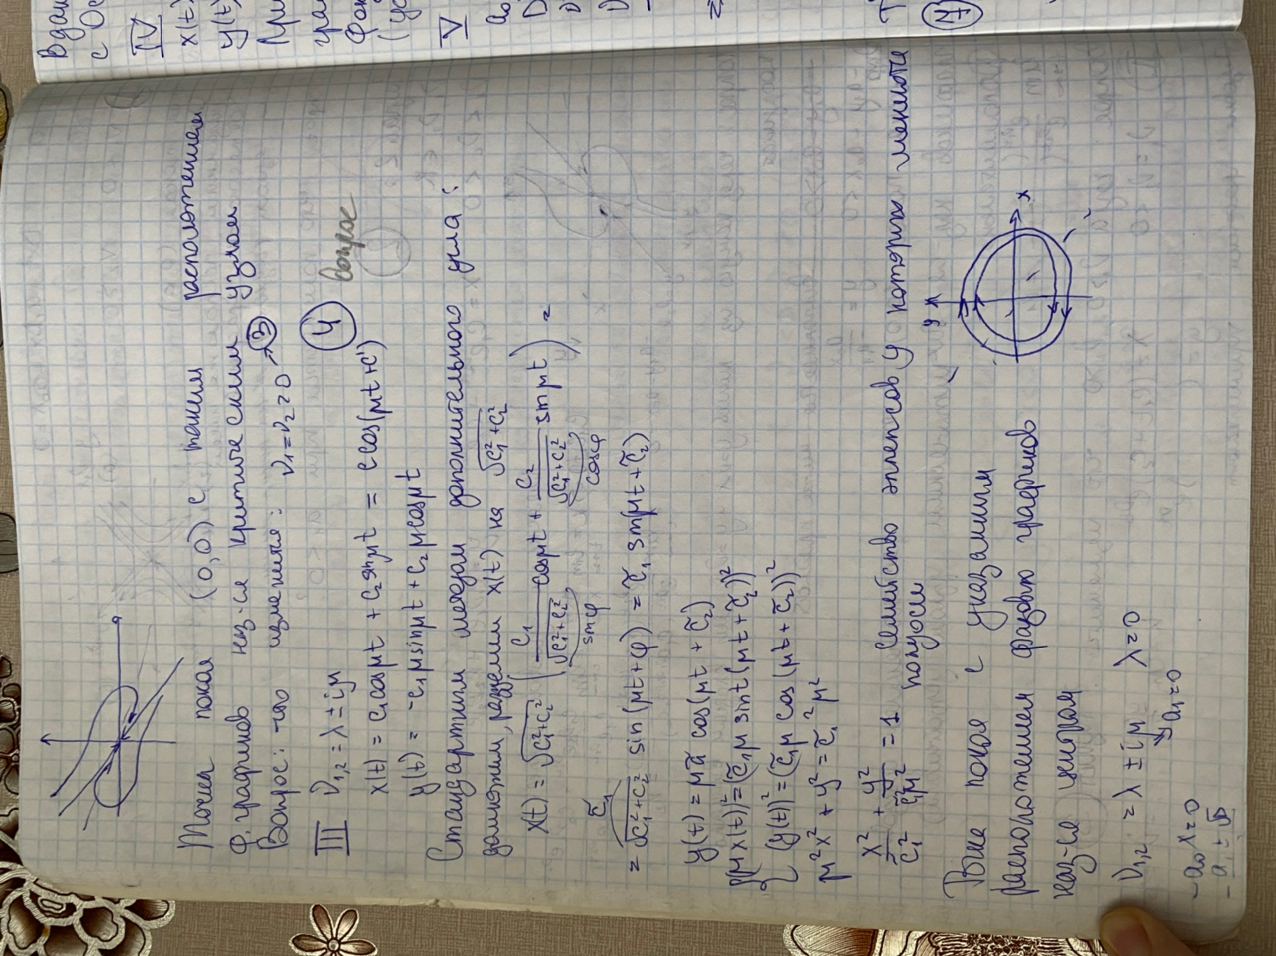 Точка покоя (0,0) с таким расположением
ф. графиков наз-ся критическим узлом
Вопрос: что изменится: ν₁=ν₂≥0 → ③
III ν₁,₂ = λ ± iμ ④ Вопрос
x(t) = c₁cosμt + c₂sinμt = c cos(μt+c')
y(t) = -c₁μsinμt + c₂μcosμt
Стандартным методом дополнительного угла:
домножим, разделим x(t) на √(c₁²+c₂²)
x(t) = √(c₁²+c₂²) (c₁/√(c₁²+c₂²) cosμt + c₂/√(c₁²+c₂²) sinμt) =
sinφ cosφ
c̃₁
= √(c₁²+c₂²) sin(μt+φ) = c̃₁ sin(μt+c̃₂)
y(t) = μc̃ cos(μt + c̃₂)
{(μx(t))² = (c̃₁μ sint(μt+c̃₂))²
(y(t))² = (c̃₁μ cos(μt+c̃₂))²
μ²x² + y² = c̃₁²μ²
x²/c̃₁² + y²/c̃₁²μ² = 1 семейство эллипсов, у которых меняются
полуоси
y
x
Точка покоя с указанным
расположением фазовых графиков
наз-ся центром
ν₁,₂ = λ ± iμ λ=0
a₁=0